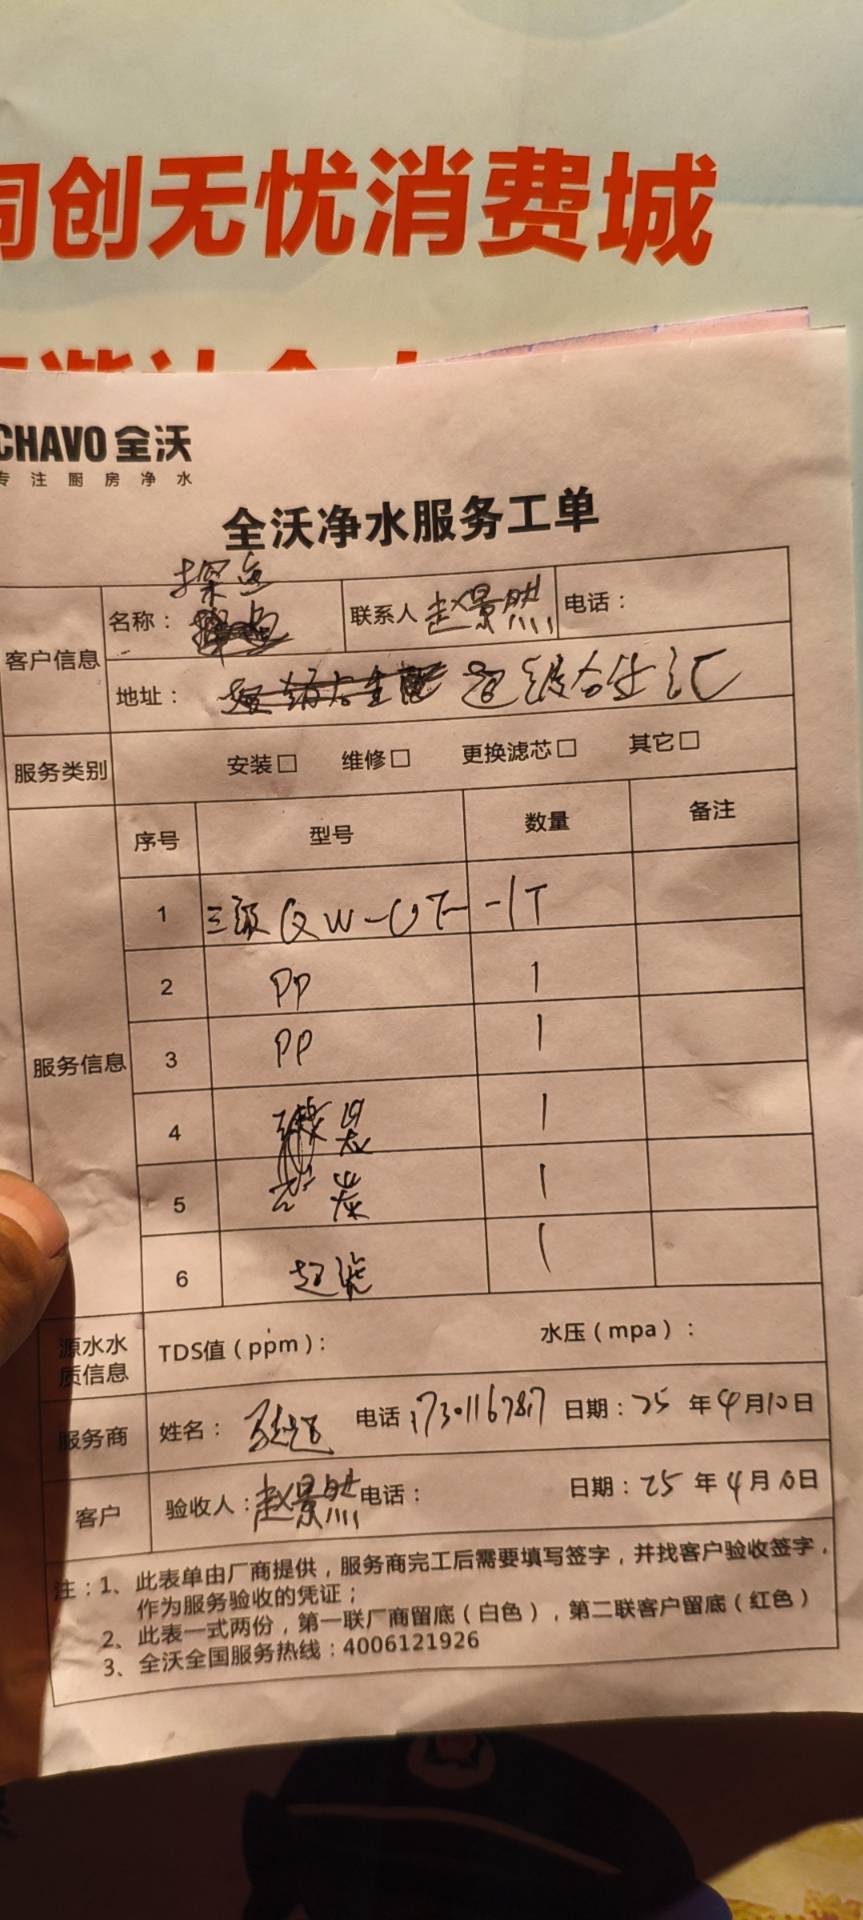 同创无忧消费城
CHAVO 全沃
专注厨房净水
全沃净水服务工单
探鱼
客户信息 名称： 联系人 赵景然 电话：
地址： 超级合生汇
服务类别 安装□ 维修□ 更换滤芯□ 其它□
服务信息 序号 型号 数量 备注
1 三级QW-UF- -1T
2 PP 1
3 PP 1
4 1
5 炭 1
6 超滤 1
源水水质信息 TDS值（ppm）： 水压（mpa）：
服务商 姓名： 电话：17301167817 日期：25 年 4 月 10 日
客户 验收人：赵景然 电话： 日期：25 年 4 月 10 日
注：1、此表单由厂商提供，服务商完工后需要填写签字，并找客户验收签字，
作为服务验收的凭证；
2、此表一式两份，第一联厂商留底（白色），第二联客户留底（红色）
3、全沃全国服务热线：4006121926